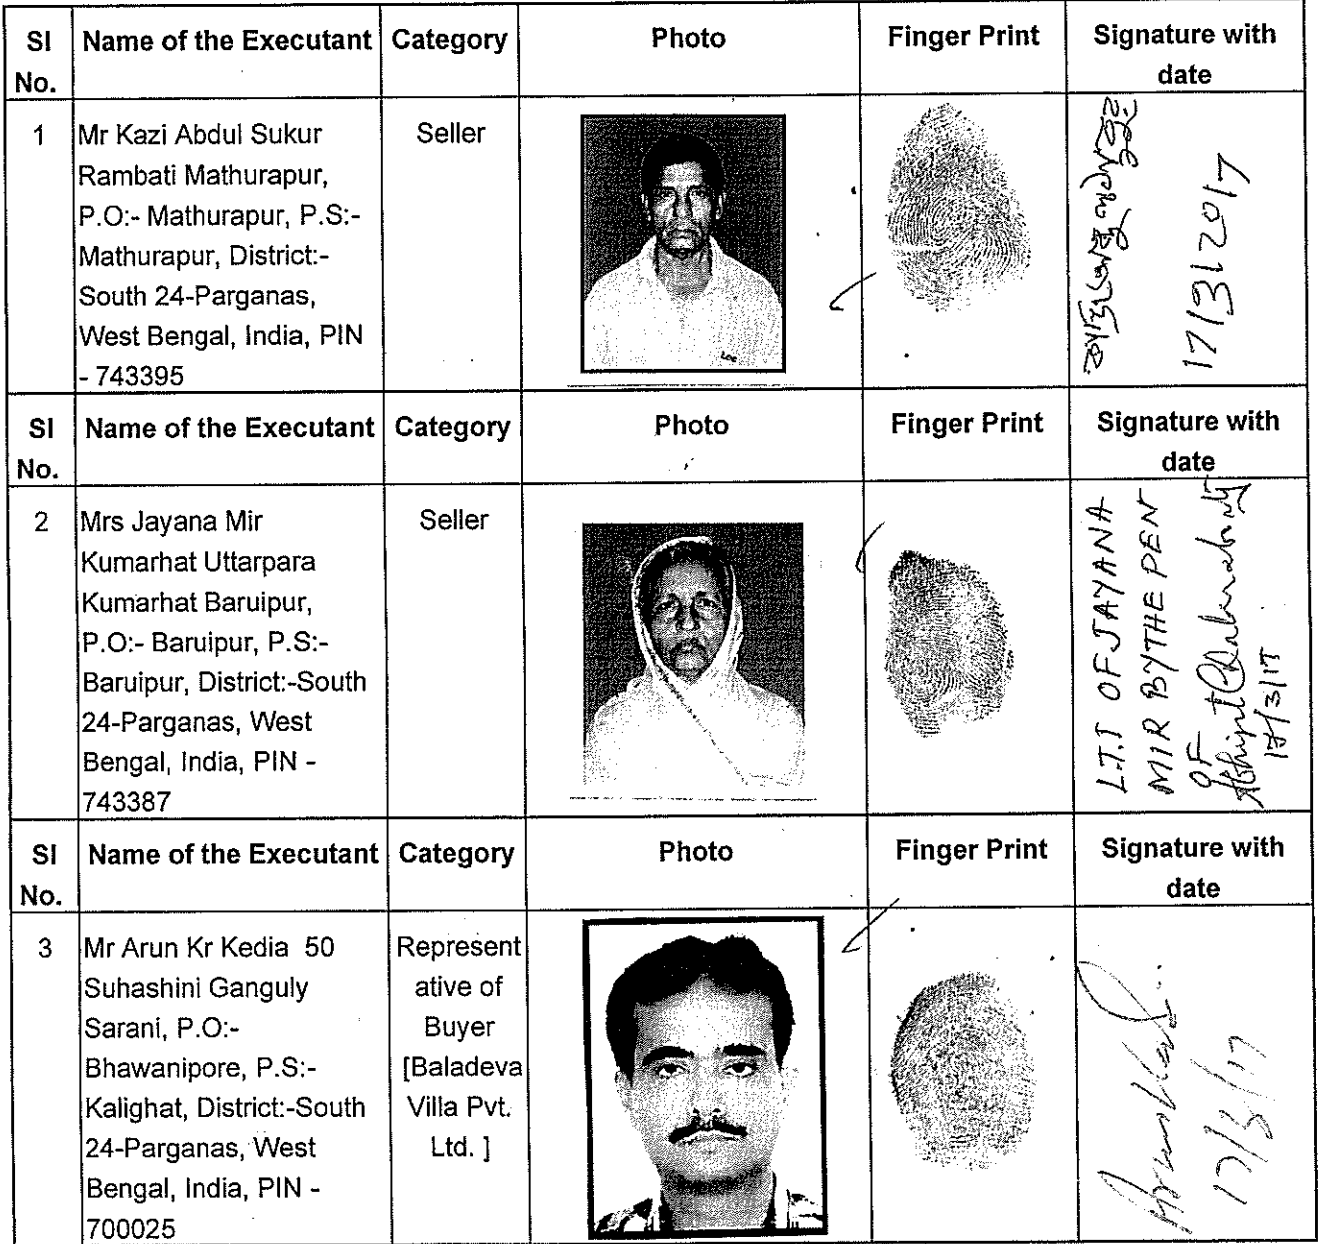 Sl No. Name of the Executant Category Photo Finger Print Signature with date
1 Mr Kazi Abdul Sukur Seller
Rambati Mathurapur,
P.O:- Mathurapur, P.S:-
Mathurapur, District:-
South 24-Parganas,
West Bengal, India, PIN
- 743395
17/3/2017
Sl No. Name of the Executant Category Photo Finger Print Signature with date
2 Mrs Jayana Mir Seller
Kumarhat Uttarpara
Kumarhat Baruipur,
P.O:- Baruipur, P.S:-
Baruipur, District:-South
24-Parganas, West
Bengal, India, PIN -
743387
L.T.I OF JAYANA
MIR BY THE PEN
OF
Abhijit Chakraborty
17/3/17
Sl No. Name of the Executant Category Photo Finger Print Signature with date
3 Mr Arun Kr Kedia 50
Suhashini Ganguly
Sarani, P.O:-
Bhawanipore, P.S:-
Kalighat, District:-South
24-Parganas, West
Bengal, India, PIN -
700025
Represent
ative of
Buyer
[Baladeva
Villa Pvt.
Ltd. ]
17/3/17